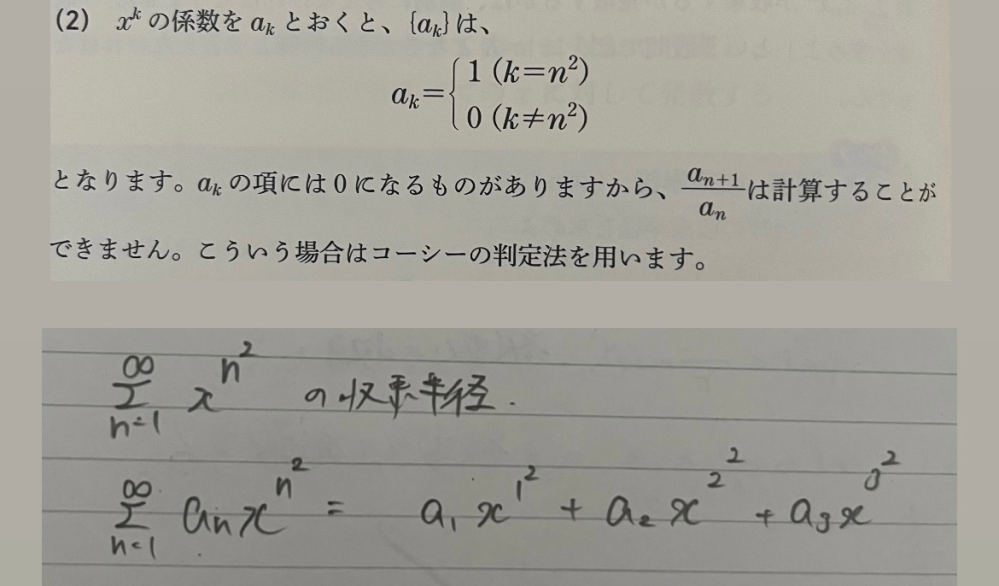 (2) x^k の係数を a_k とおくと、{a_k}は、
a_k = { 1 (k=n²)
0 (k≠n²)
となります。a_k の項には0になるものがありますから、a_{n+1}/a_n は計算することが
できません。こういう場合はコーシーの判定法を用います。
∞∑n=1 x^{n²} の収束半径.
∞∑n=1 a_n x^{n²} = a_1 x^{1²} + a_2 x^{2²} + a_3 x^{3²}